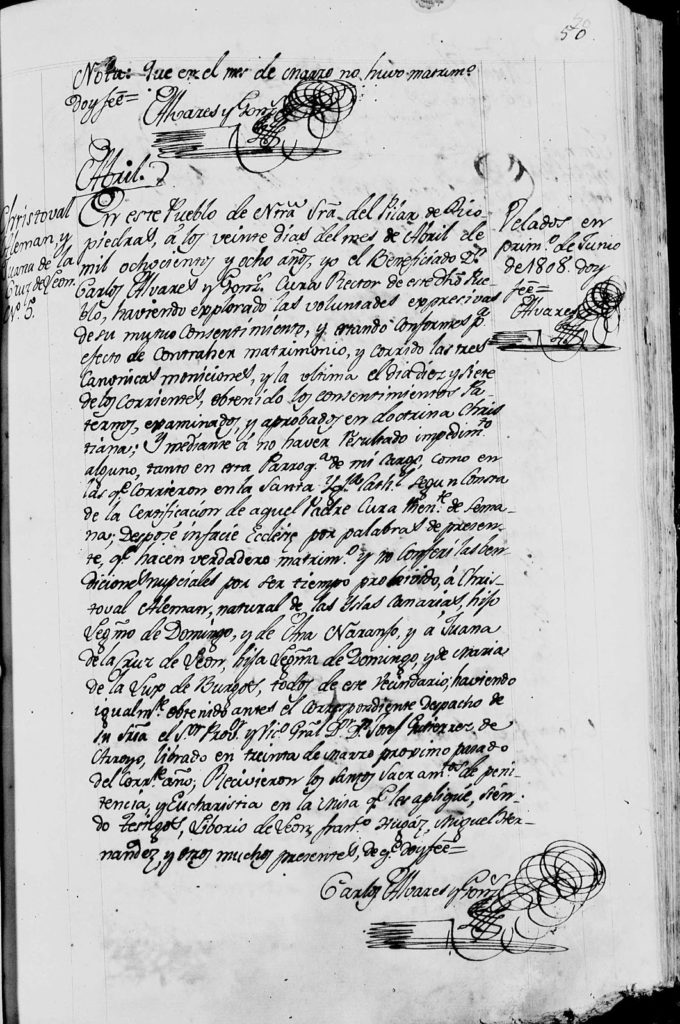 50
50
Nota: Que en el mes de marzo no huvo matrimº
doy feê=
Alvares y Gonz
Abril.
Christoval
Aleman, y
Juana de la
Cruz de Leon.
Nº. 5.
En este Pueblo de Ntrã Srã. del Pilar de Rio
piedras, á los veinte dias del mes de Abril de
mil ochocientos y ocho años, yo el Beneficiado Dn.
Carlos Alvares y Gonz. Cura Rector de este dho Pue-
blo, haviendo explorado las voluntades exprecivas
de su mutuo Consentimiento, y estando Conformes pª
efecto de Contraher matrimonio, y corrido las tres
Canonicas moniciones, y la ultima el dia diez y siete
de los Corrientes, obtenido los consentimientos Pa
ternos, examinados, y aprobados en doctrina Chris
tiana; Y mediante á no haver resultado impedimto
alguno, tanto en esta Parroqª de mi cargo, como en
las q. Corrieron en la Santa Yglª Cathl. segun Consta
de la Certificacion de aquel Padre Cura thente. de Sema-
na; Desposé infacié Ecclesie por palabras de presen-
te, q. hacen verdadero matrimº. y no Conferi las ben-
diciones nupciales por ser tiempo prohivido, á Chris-
toval Aleman, natural de las Yslas Canarias, hijo
Legmo de Domingo, y de Ana Naranjo, y á Juana
de la Cruz de Leon, hija Legma de Domingo, y de Maria
de la Luz de Burgos, todos de este Vecindario, haviendo
igualmte. obtenido antes el Correspondiente Despacho de
su Sria el Sor Provor. y Vicº Gral Dr. Dn Josef Gutierrez de
Arroyo, librado en treinta de Marzo proximo pasado
del Corrte año; Recivieron los Santos Sacramtos de peni
tencia, y Eucharistia en la misa q. les apliqué, sien-
do testigos, Liborio de Leon, Franº. Hugaz, Miguel Her-
nandez, y otros muchos presentes, de q. doy feê=
Carlos Alvares y Gonz
Velados en
primº. de Junio
de 1808. doy
feê=
Alvares